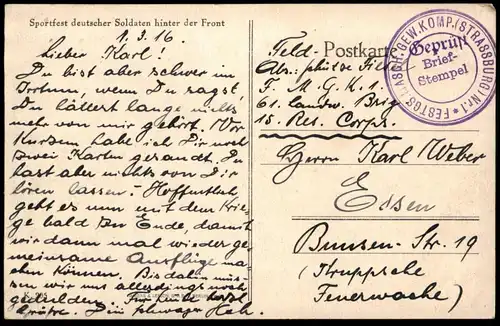 Sportfest deutscher Soldaten hinter der Front
1.3.16
Lieber Karl!
Du bist aber schwer im
Irrtum, wenn Du sagst,
Du hättest lange nichts
mehr von mir gehört. Vor
Kurzem habe ich Dir noch
zwei Karten gesandt. Du
hast aber nichts von Dir
hören lassen. - Hoffentlich
geht es nun mit dem Krie-
ge bald zu Ende, damit
wir dann mal wieder ge-
meinsame Ausflüge ma-
chen können. Bis dahin müs-
sen wir uns allerdings noch
gedulden. Für heute herzl.
Grüße. Dein Schwager
Feld- Postkarte
Abs.
F. M. G. K. 1.
61. Landw. Brig.
15. Res. Corps.
Herrn Karl Weber
Essen
Bunsen-Str. 19
(Kruppsche
Feuerwache)
FESTGS. MASCH. GEW. KOMP. (STRASSBURG) Nr.
Geprüft
Brief-
Stempel